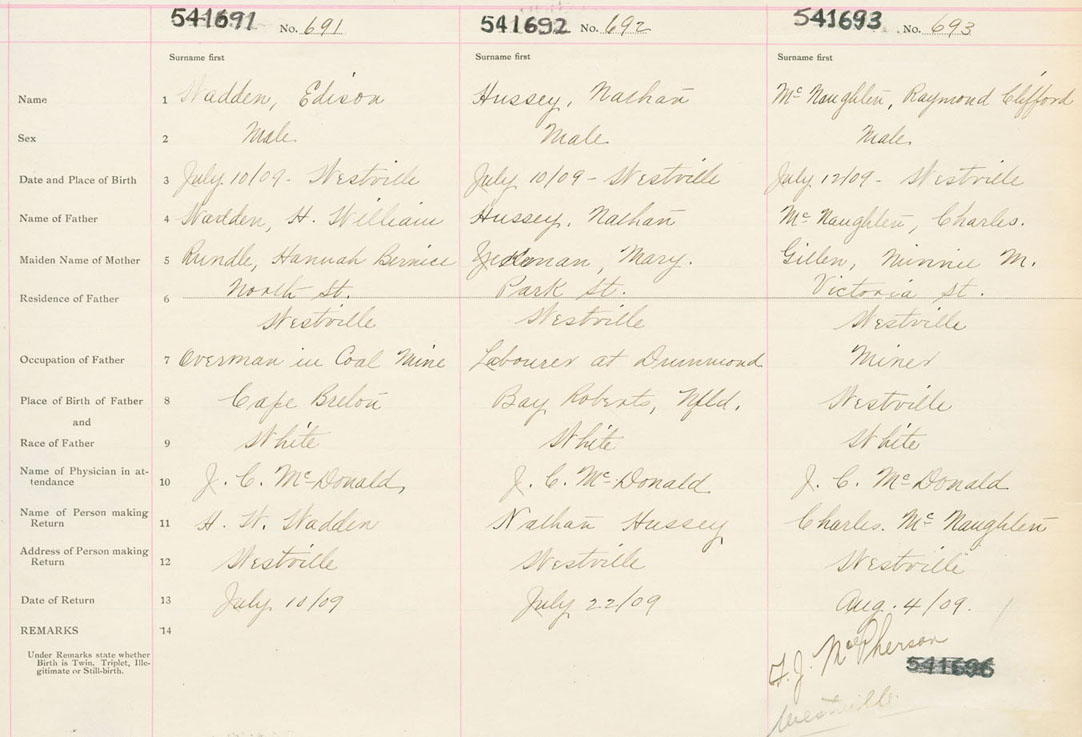 541691 No. 691 541692 No. 692 541693 No. 693
Surname first Surname first Surname first
Name 1 Wadden, Edison Hussey, Nathan McNaughten, Raymond Clifford
Sex 2 Male Male Male
Date and Place of Birth 3 July 10/09 - Westville July 10/09 - Westville July 12/09 - Westville
Name of Father 4 Wadden, H. William Hussey, Nathan McNaughten, Charles.
Maiden Name of Mother 5 Rundle, Hannah Bernice Mary. Gillen, Minnie M.
Residence of Father 6 North St. Park St. Victoria St.
Westville Westville Westville
Occupation of Father 7 Overman in Coal Mine Labourer at Drummond Miner
Place of Birth of Father 8 Cape Breton Bay Roberts, Nfld. Westville
and
Race of Father 9 White White White
Name of Physician in at-
tendance 10 J. C. McDonald, J. C. McDonald J. C. McDonald
Name of Person making
Return 11 H. W. Wadden Nathan Hussey Charles. McNaughten
Address of Person making
Return 12 Westville Westville Westville
Date of Return 13 July 10/09 July 22/09 Aug. 4/09.
REMARKS 14
Under Remarks state whether
Birth is Twin, Triplet, Ille-
gitimate or Still-birth.
McPherson
541696
Westville